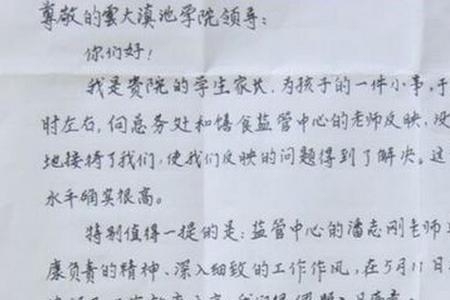 尊敬的雲大滇池学院领导:
你们好!
我是贵院的学生家长,为孩子的一件小事,于
时左右,向总务处和膳食监管中心的老师反映,没
地接待了我们,使我们反映的问题得到了解决。这
水平确实很高。
特别值得一提的是:监管中心的潘志刚老师
廉负责的精神、深入细致的工作作风,在5月11日